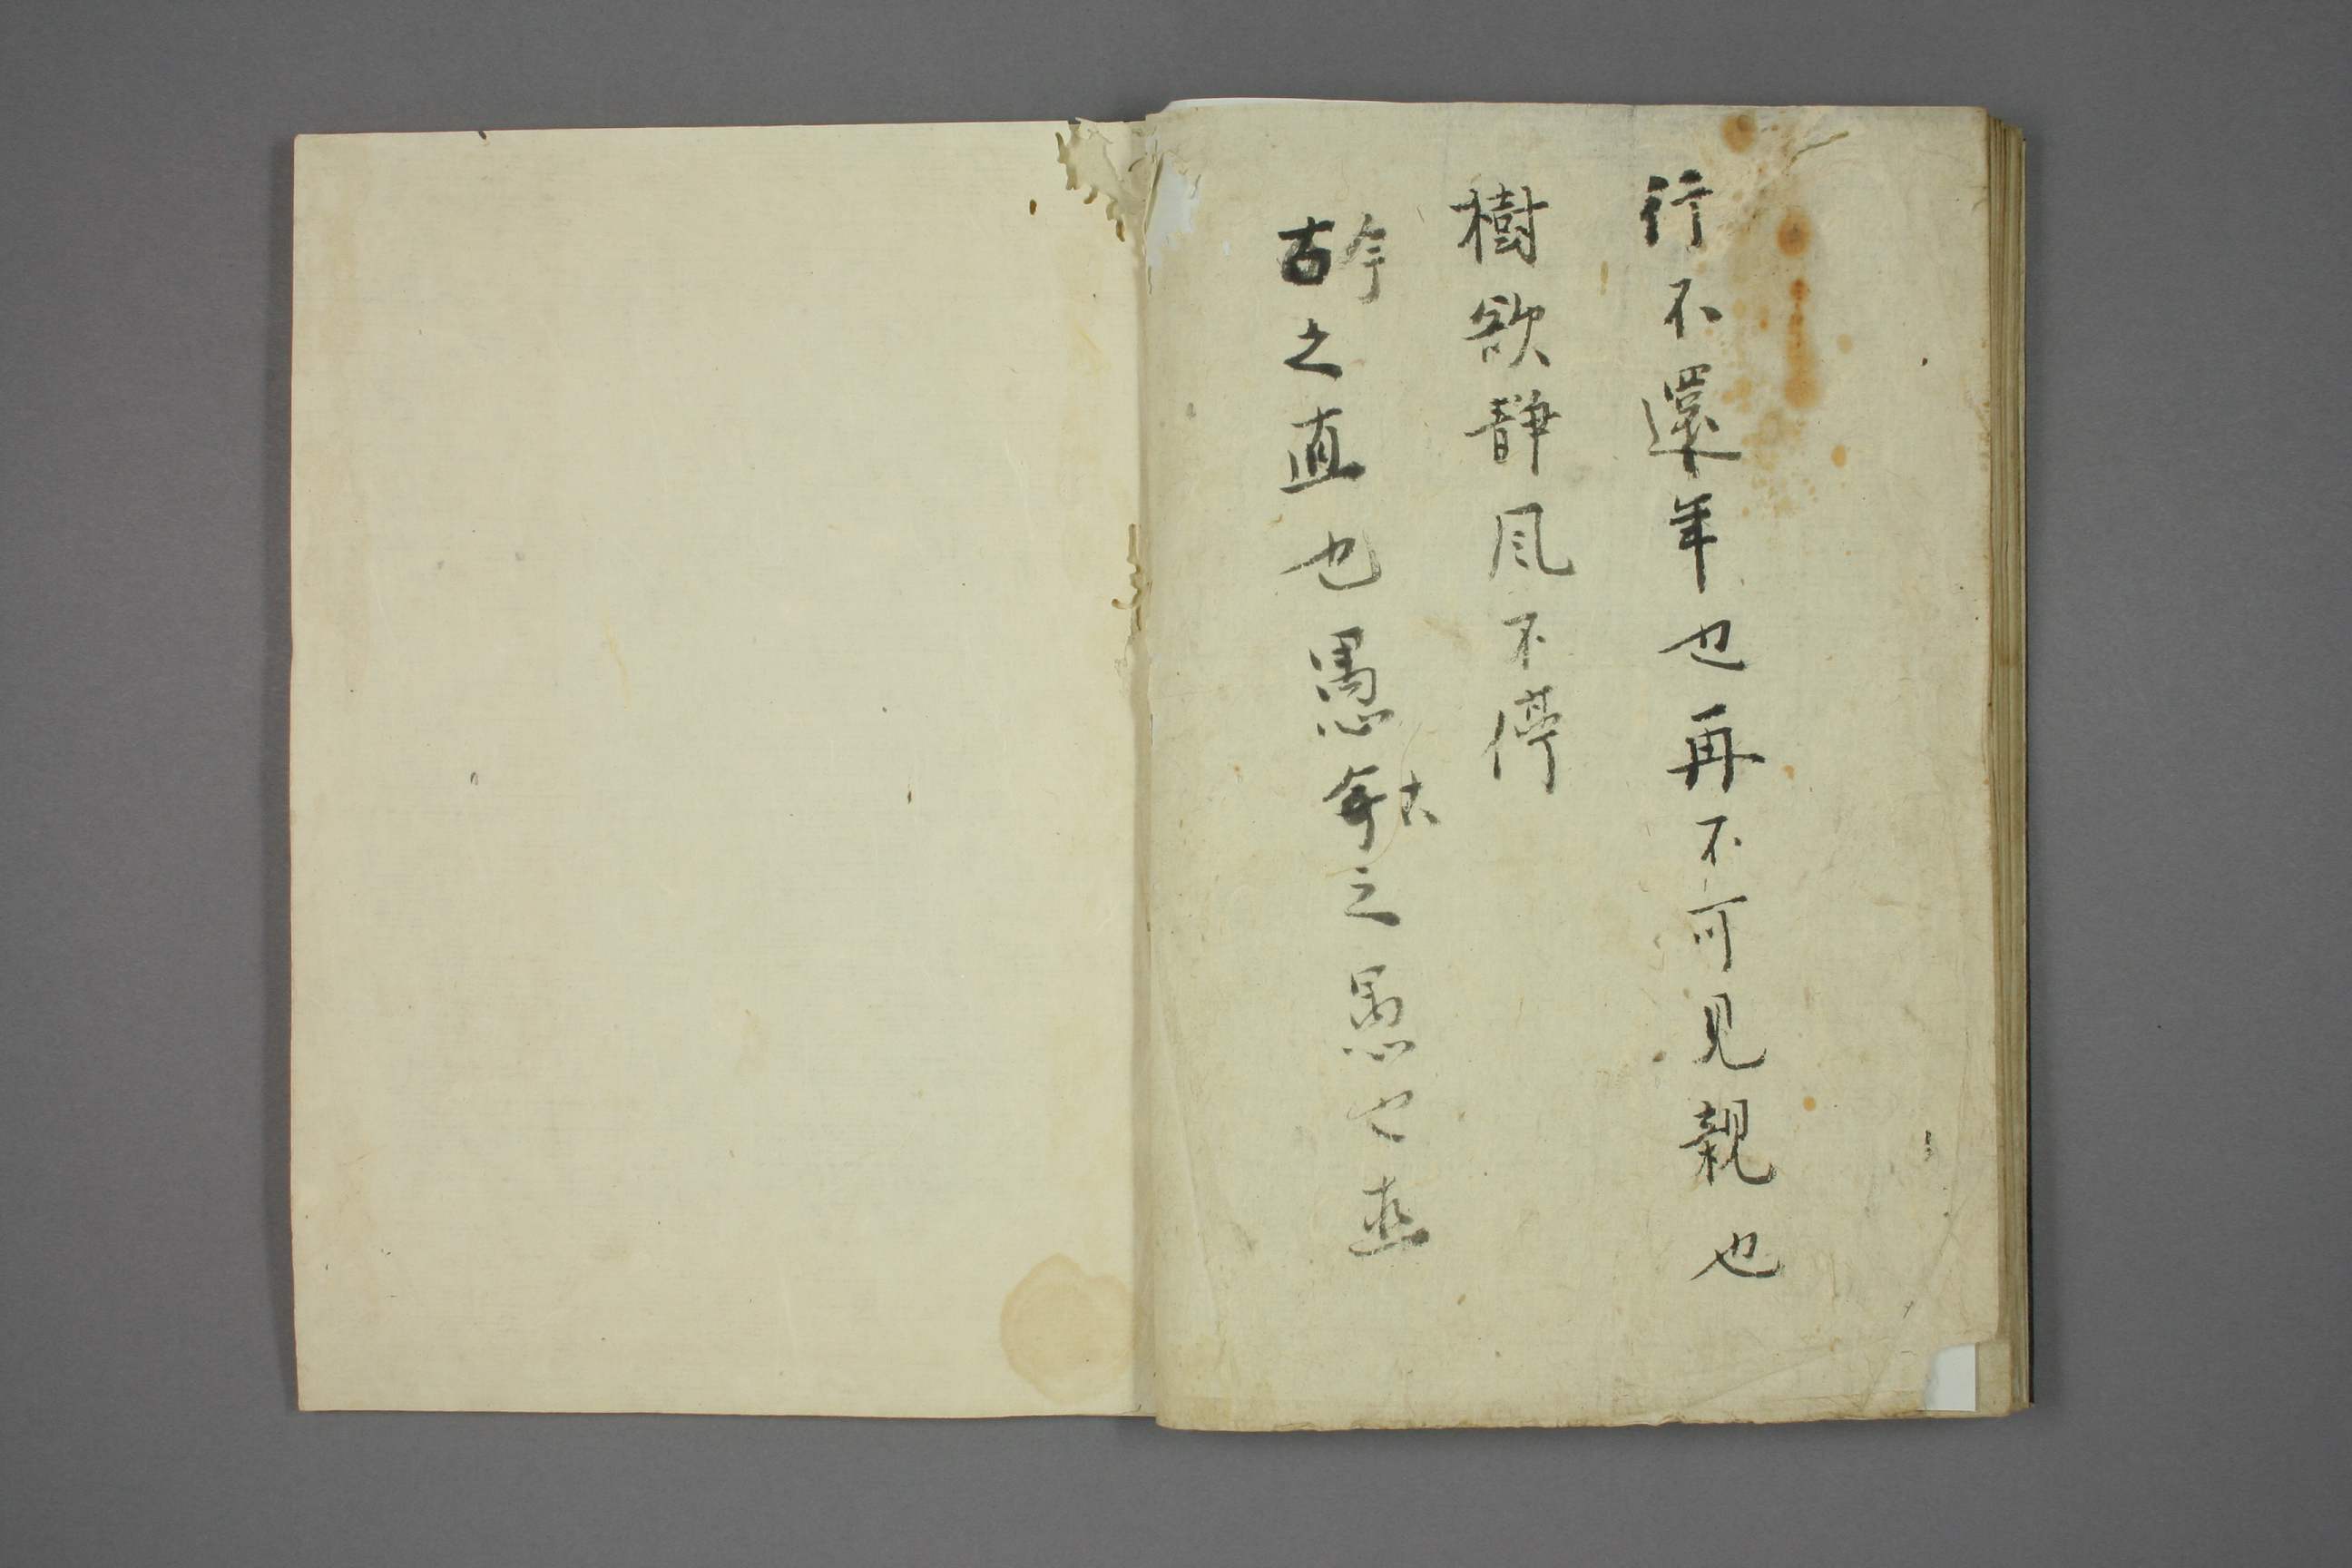 行不還年也再不可見親也
樹欲静風不停
今
古之直也愚今之愚也直
古